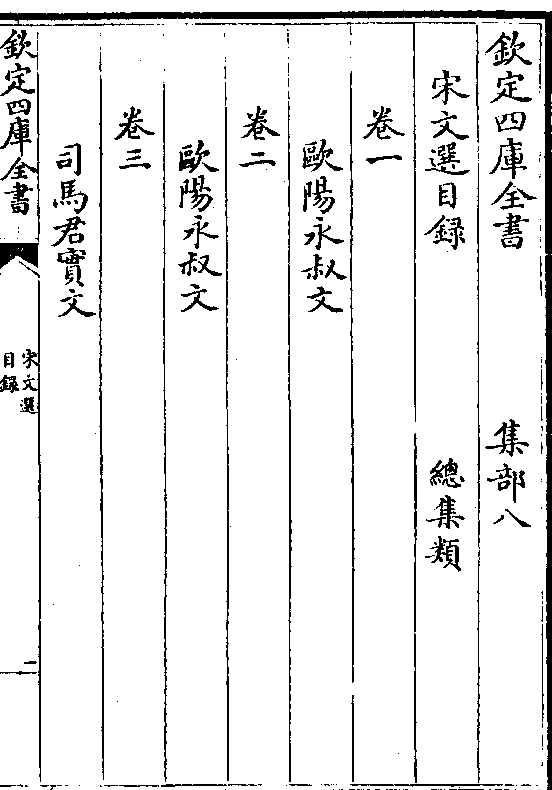 欽定四庫全書 集部八
宋文選目録 總集類
卷一
歐陽永叔文
卷二
歐陽永叔文
卷三
司馬君實文
欽定四庫全書
宋文選
目録